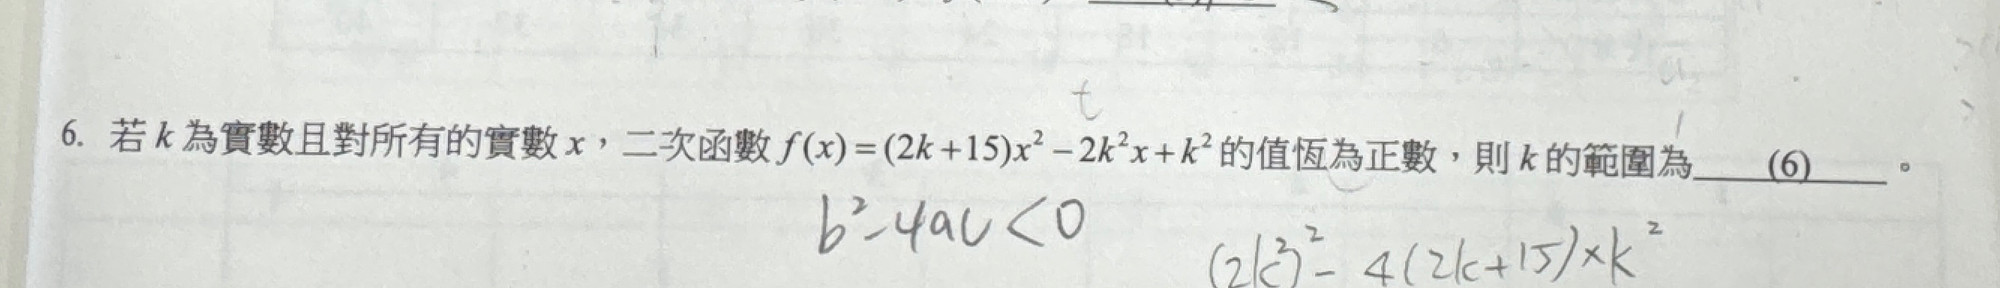 t
6. 若 k 為實數且對所有的實數 x，二次函數 f(x)=(2k+15)x²−2k²x+k² 的值恆為正數，則 k 的範圍為 (6) 。
b²-4ac<0
(2k²)²-4(2k+15)×k²